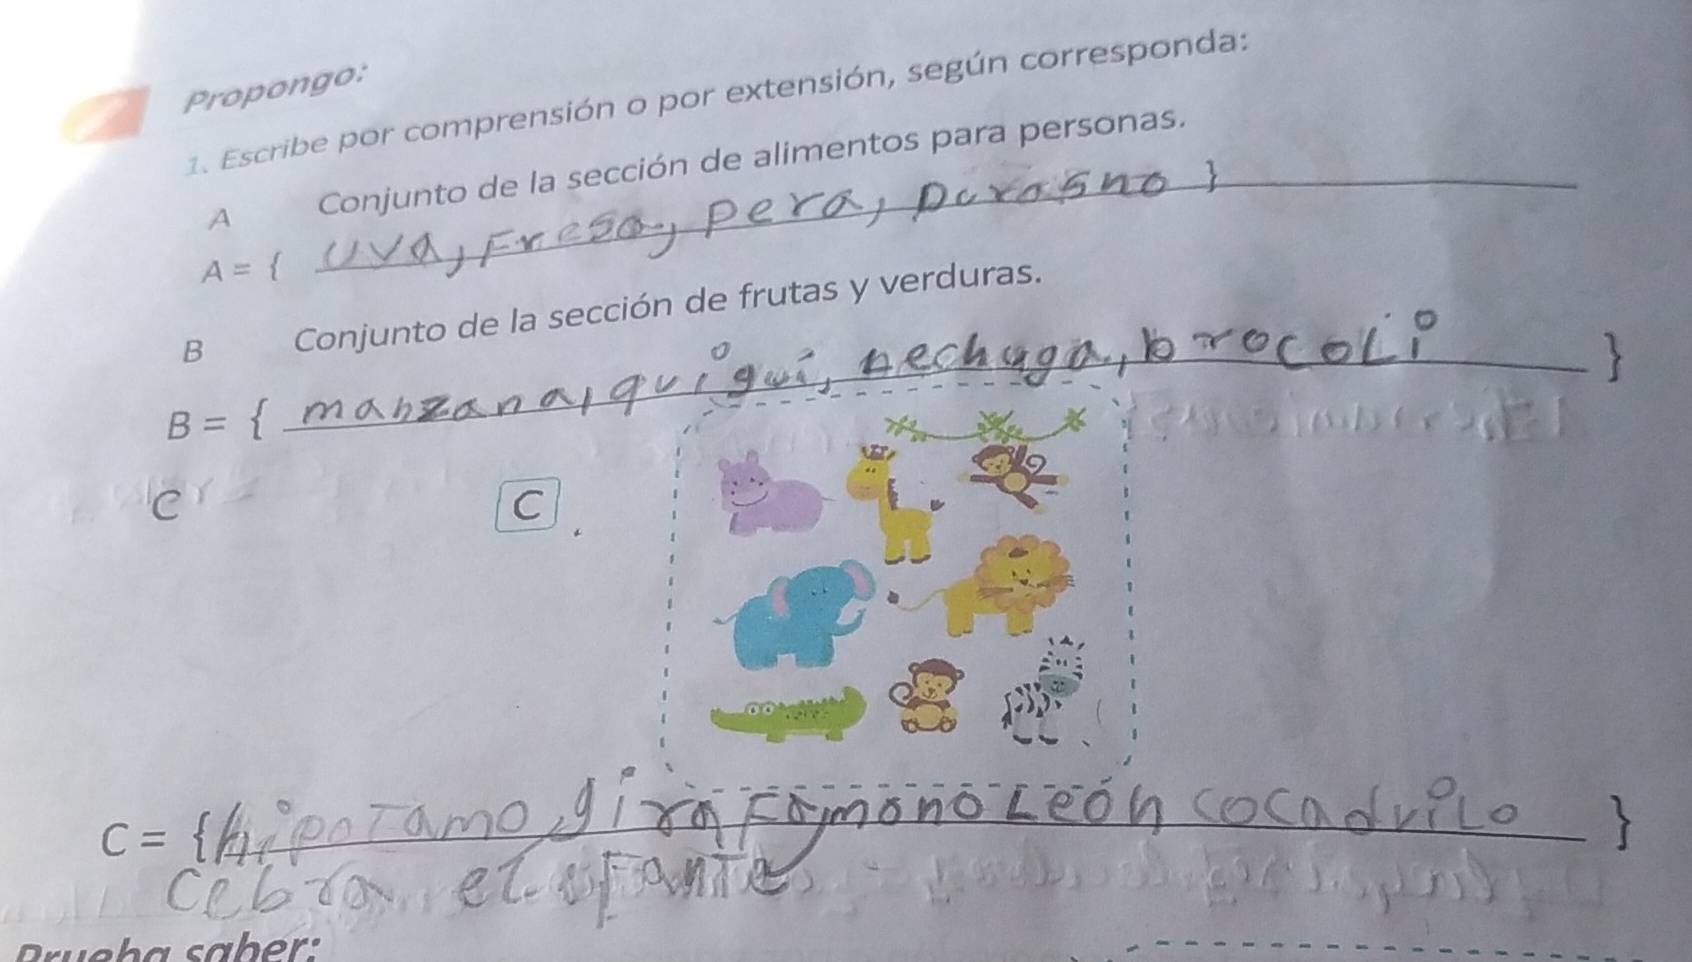 Propongo:
1. Escribe por comprensión o por extensión, según corresponda:
A Conjunto de la sección de alimentos para personas.
A = { uva, Fresa, pera, Durasno }
B Conjunto de la sección de frutas y verduras.
B = { manzana, quigui, hechuga, brocoli }
C
C
C = { hipotamo, girafa, mono León cocadrilo }
cebra elefante
Prueba saber: